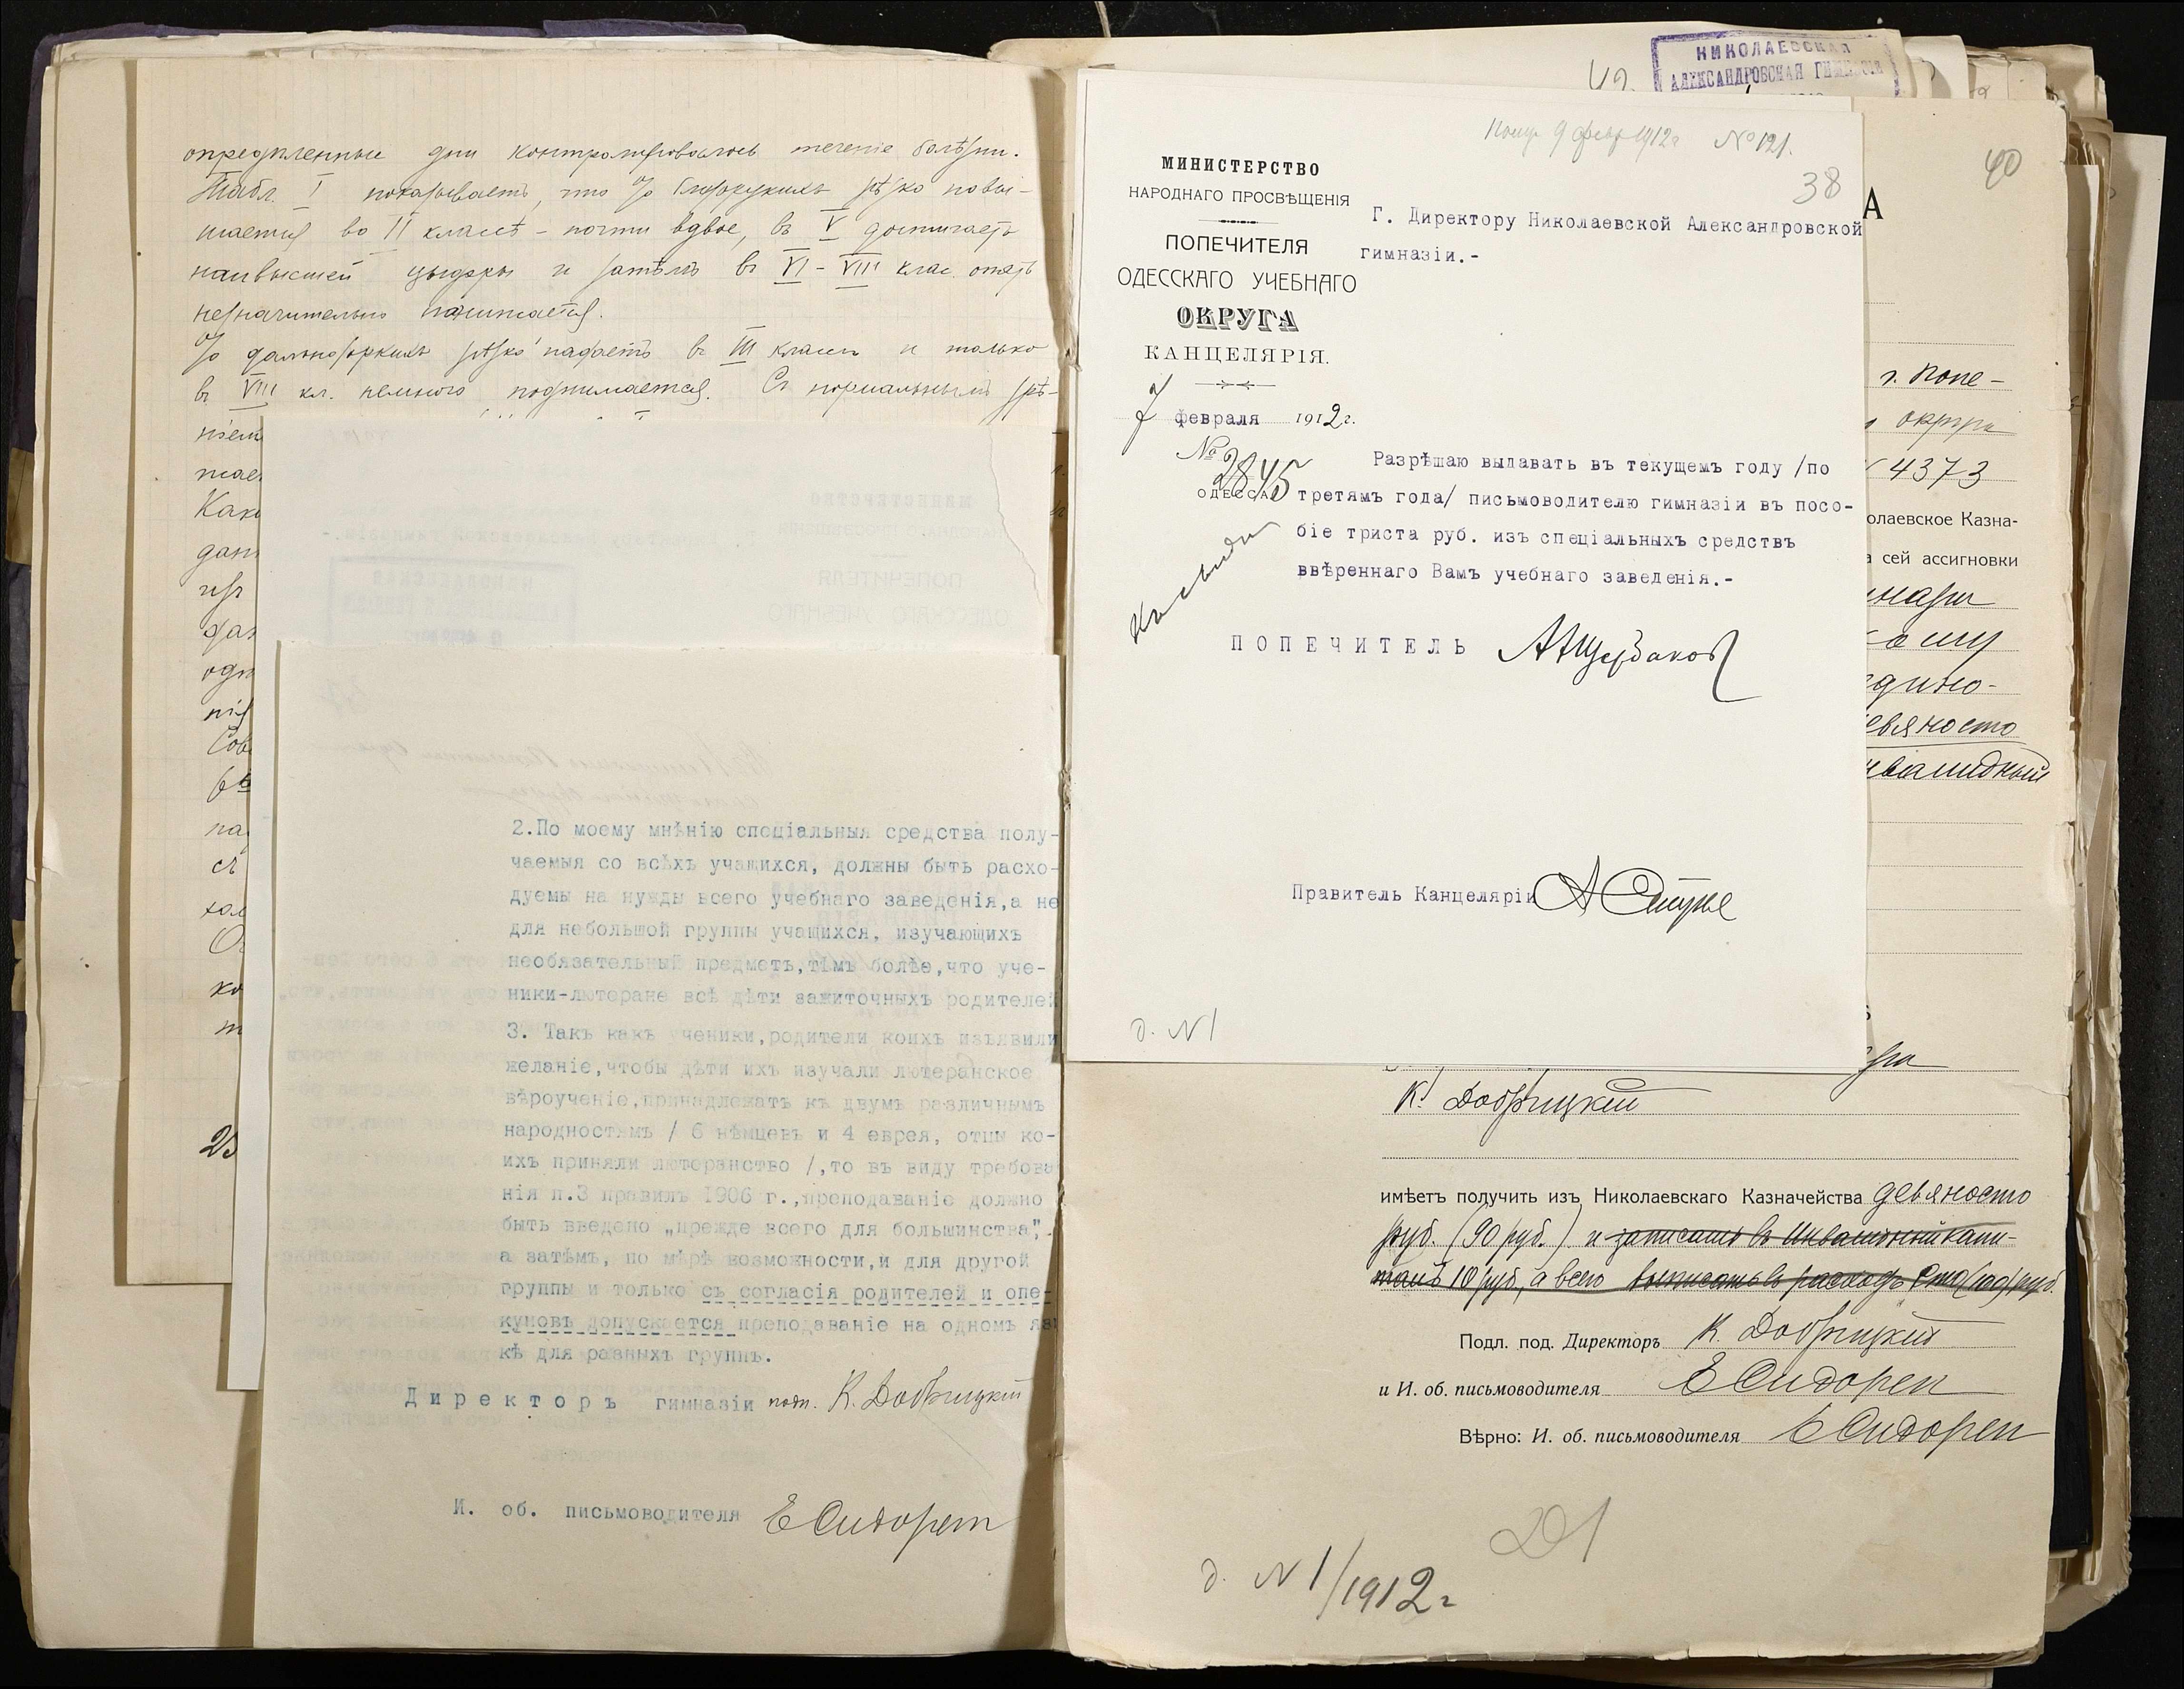 опредѣленные дни контролировалось теченіе болѣзни.
Табл. I показываетъ, что % близорукихъ рѣзко повы-
шается во II классѣ - почти вдвое, въ V достигаетъ
наивысшей цыфры и затѣмъ въ VI - VIII клас. опять
незначительно понижается.
% дальнозоркихъ рѣзко падаетъ въ III классѣ и только
въ VIII кл. немного поднимается. Съ нормальнымъ зрѣ-
ніем
Како
дан
одн
Сов
на
съ
ко
т
25
2.По моему мнѣнію спеціальныя средства полу-
чаемыя со всѣхъ учащихся, должны быть расхо-
дуемы на нужды всего учебнаго заведенія,а не
для небольшой группы учащихся, изучающихъ
необязательный предметъ,тѣмъ болѣе,что уче-
ники-лютеране всѣ дѣти зажиточныхъ родителей
3. Такъ какъ ученики,родители коихъ изъявили
желаніе,чтобы дѣти ихъ изучали лютеранское
вѣроученіе,принадлежатъ къ двумъ различнымъ
народностямъ / 6 нѣмцевъ и 4 еврея, отцы ко-
ихъ приняли лютеранство /,то въ виду требова
нія п.3 правилъ 1906 г.,преподаваніе должно
быть введено „прежде всего для большинства",
а затѣмъ, по мѣрѣ возможности,и для другой
группы и только съ согласія родителей и опе-
куновъ допускается преподаваніе на одномъ яз
кѣ для разныхъ группъ.
Директоръ гимназіи подп. К. Добрицкій
И. об. письмоводителя Е Сидорен
НИКОЛАЕВСКАЯ
АЛЕКСАНДРОВСКАЯ ГИМНАЗІЯ
Получ 9 февр 1912г №121.
38
МИНИСТЕРСТВО
НАРОДНАГО ПРОСВѢЩЕНІЯ
ПОПЕЧИТЕЛЯ
ОДЕССКАГО УЧЕБНАГО
ОКРУГА
КАНЦЕЛЯРІЯ.
7 февраля 1912г.
№ 2845
ОДЕССА
Г. Директору Николаевской Александровской
гимназіи.-
Разрѣшаю выдавать въ текущемъ году /по
третямъ года/ письмоводителю гимназіи въ посо-
біе триста руб. изъ спеціальныхъ средствъ
ввѣреннаго Вамъ учебнаго заведенія.-
ПОПЕЧИТЕЛЬ АЩербаков
Правитель Канцеляріи
д. №1
40
А
г. Попе-
округа
4373
олаевское Казна-
а сей ассигновки
едино-
евяносто
К. Добрицкій
имѣетъ получить изъ Николаевскаго Казначейства девяносто
руб. (90 руб.) и записать въ Инвалидный капи-
талъ 10 руб, а всего выписать въ расходъ Сто (100) руб.
Подл. под. Директоръ К. Добрицкій
и И. об. письмоводителя Е Сидорен
Вѣрно: И. об. письмоводителя Е Сидорен
201
д. №1/1912г